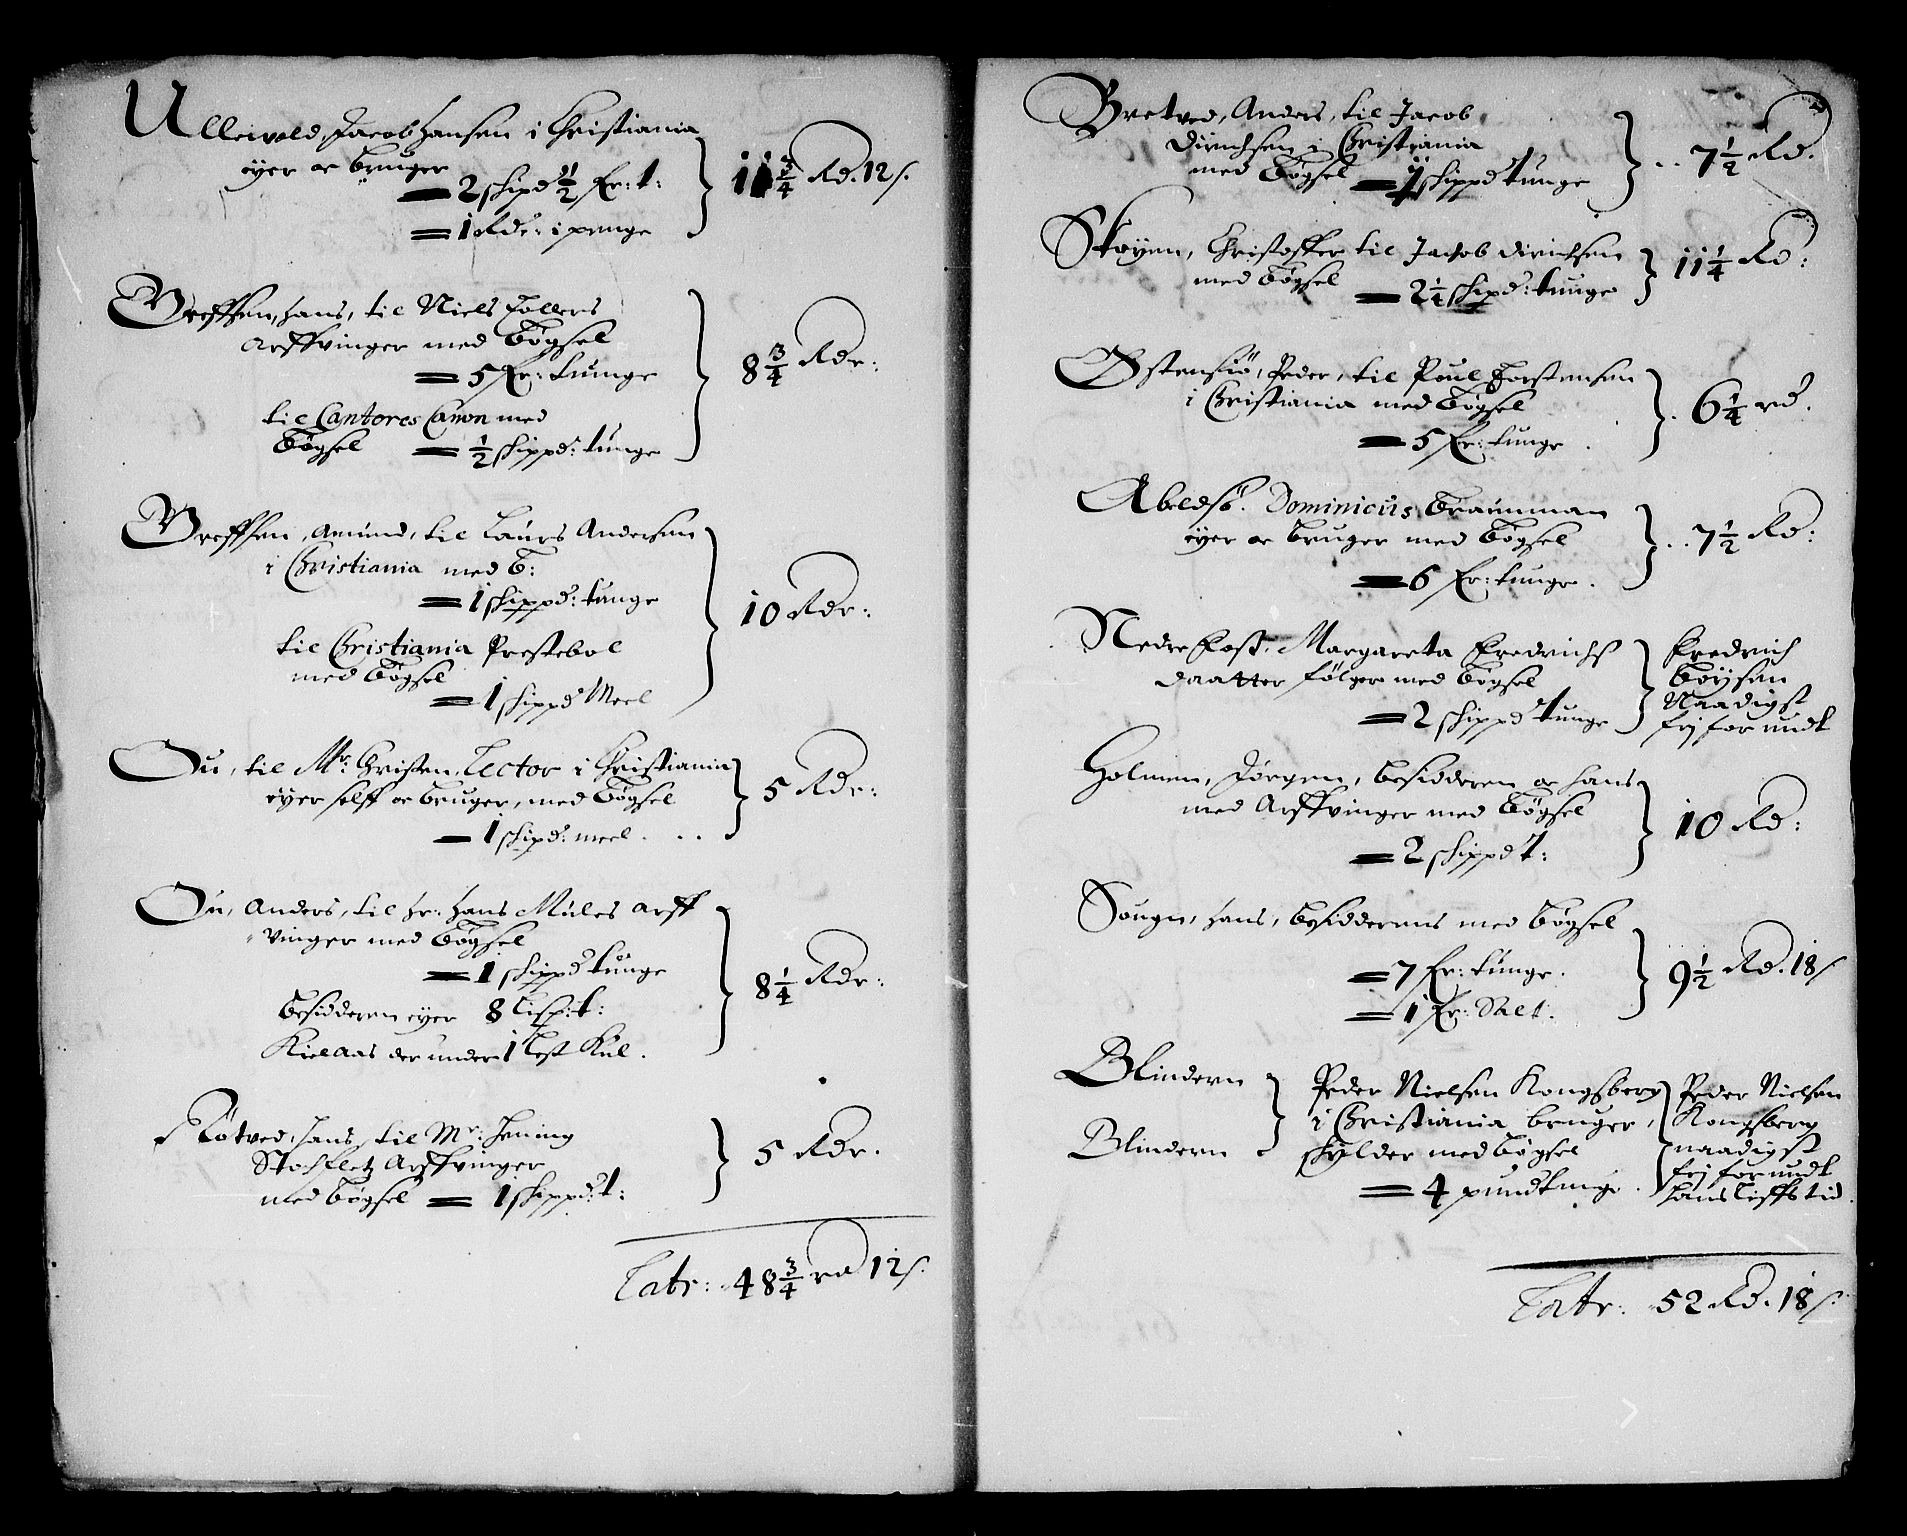 Ulleivold, Jacob Hansen i Christiania
eyer oc bruger
= 2 schipd ½ fr: t:
= 1 Rdr: i penge
11¾ Rd. 12 s.
Greffsen, Hans, til Niels Tollers
Arffvinger med bögsel
= 5 fr: tunge
til Cantores Canon med
bögsel = ½ schippd: tunge
8¾ Rdr:
Greffsen, Amund, til Laurs Andersen
i Christiania med b:
= 1 schippd: tunge
til Christiania Prestebol
med bögsel
= 1 schippd Meel
10 Rdr:
Ou, til Mr. Christen, Lector i Christiania
eyer selff oc bruger, med bögsel
= 1 schipd: meel . . .
5 Rdr:
Ou, Anders, til Hr: Hans Mules Arff
vinger med bögsel
= 1 schippd tunge
besidderen eyer 8 Lisp: t:
Kielaas der under 1 Lest Kul.
8¼ Rdr:
Rötved, Hans, til Mr: Hening
Stochfletz Arffvinger
med bögsel = 1 schippd: t:
5 Rdr.
Latr: 48¾ rd 12 s.
Bretved, Anders, til Jacob
Dirichsen i Christiania
med bögsel = 1 schippd tunge
. . 7½ Rd.
Skøyen, Christoffer til Jacob Dirichsen
med bögsel
= 2¼ schipd: tunge
11¼ Rd:
Østensiö, Peder, til Poul Torstensen
i Christiania med bögsel
= 5 fr: tunge .
. 6¼ rd.
Abeldsö. Dominicus Braunman
eyer oc bruger med bögsel
= 6 fr: tunge .
. . 7½ Rd:
Nedre Foss. Margareta Fredrichs
daatter følger med bögsel
= 2 schippd tunge
Fredrich
Böysen
Naadigst
frj forundt
Holmen, Jörgen, besidderen oc hans
med Arffvinger med bögsel
= 2 schippd t:
10 Rd:
Sougn, Hans, besidderens med bögsel
= 7 fr: tunge.
= 1 fr: Salt.
9½ Rd. 18 s.
Blindern
Blindern
Peder Nielsen Kongsberg
i Christiania bruger,
schylder med bögsel
= 4 pund tunge .
Peder Nielsen
Kongsberg
naadigst
frj forundt
hans liffs tid.
Latr: 52 Rd. 18 s.